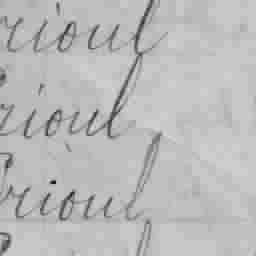 rioul
rioul
rioul